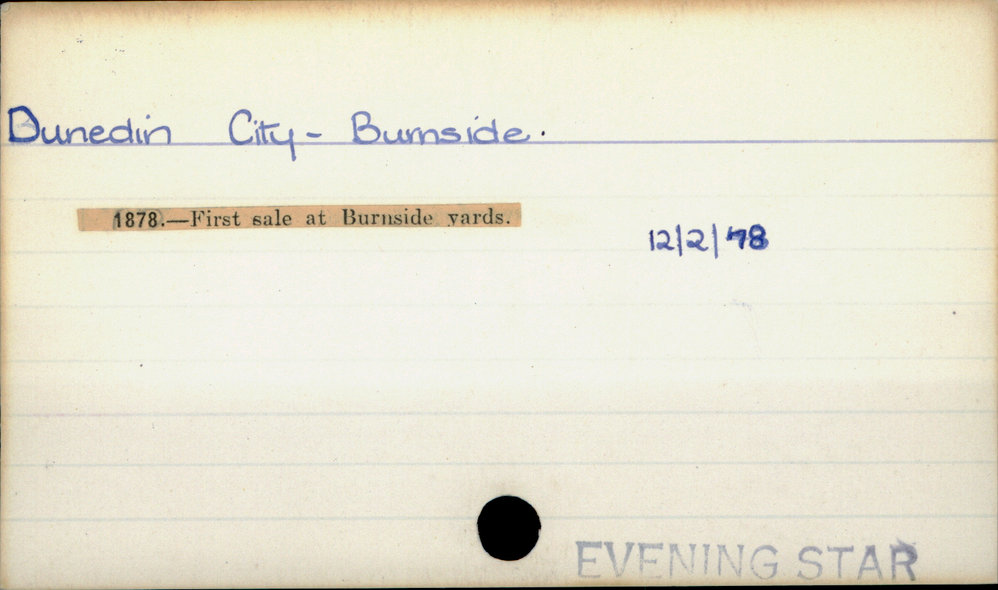 Dunedin City - Burnside.
1878.—First sale at Burnside yards.
12/2/78
EVENING STAR